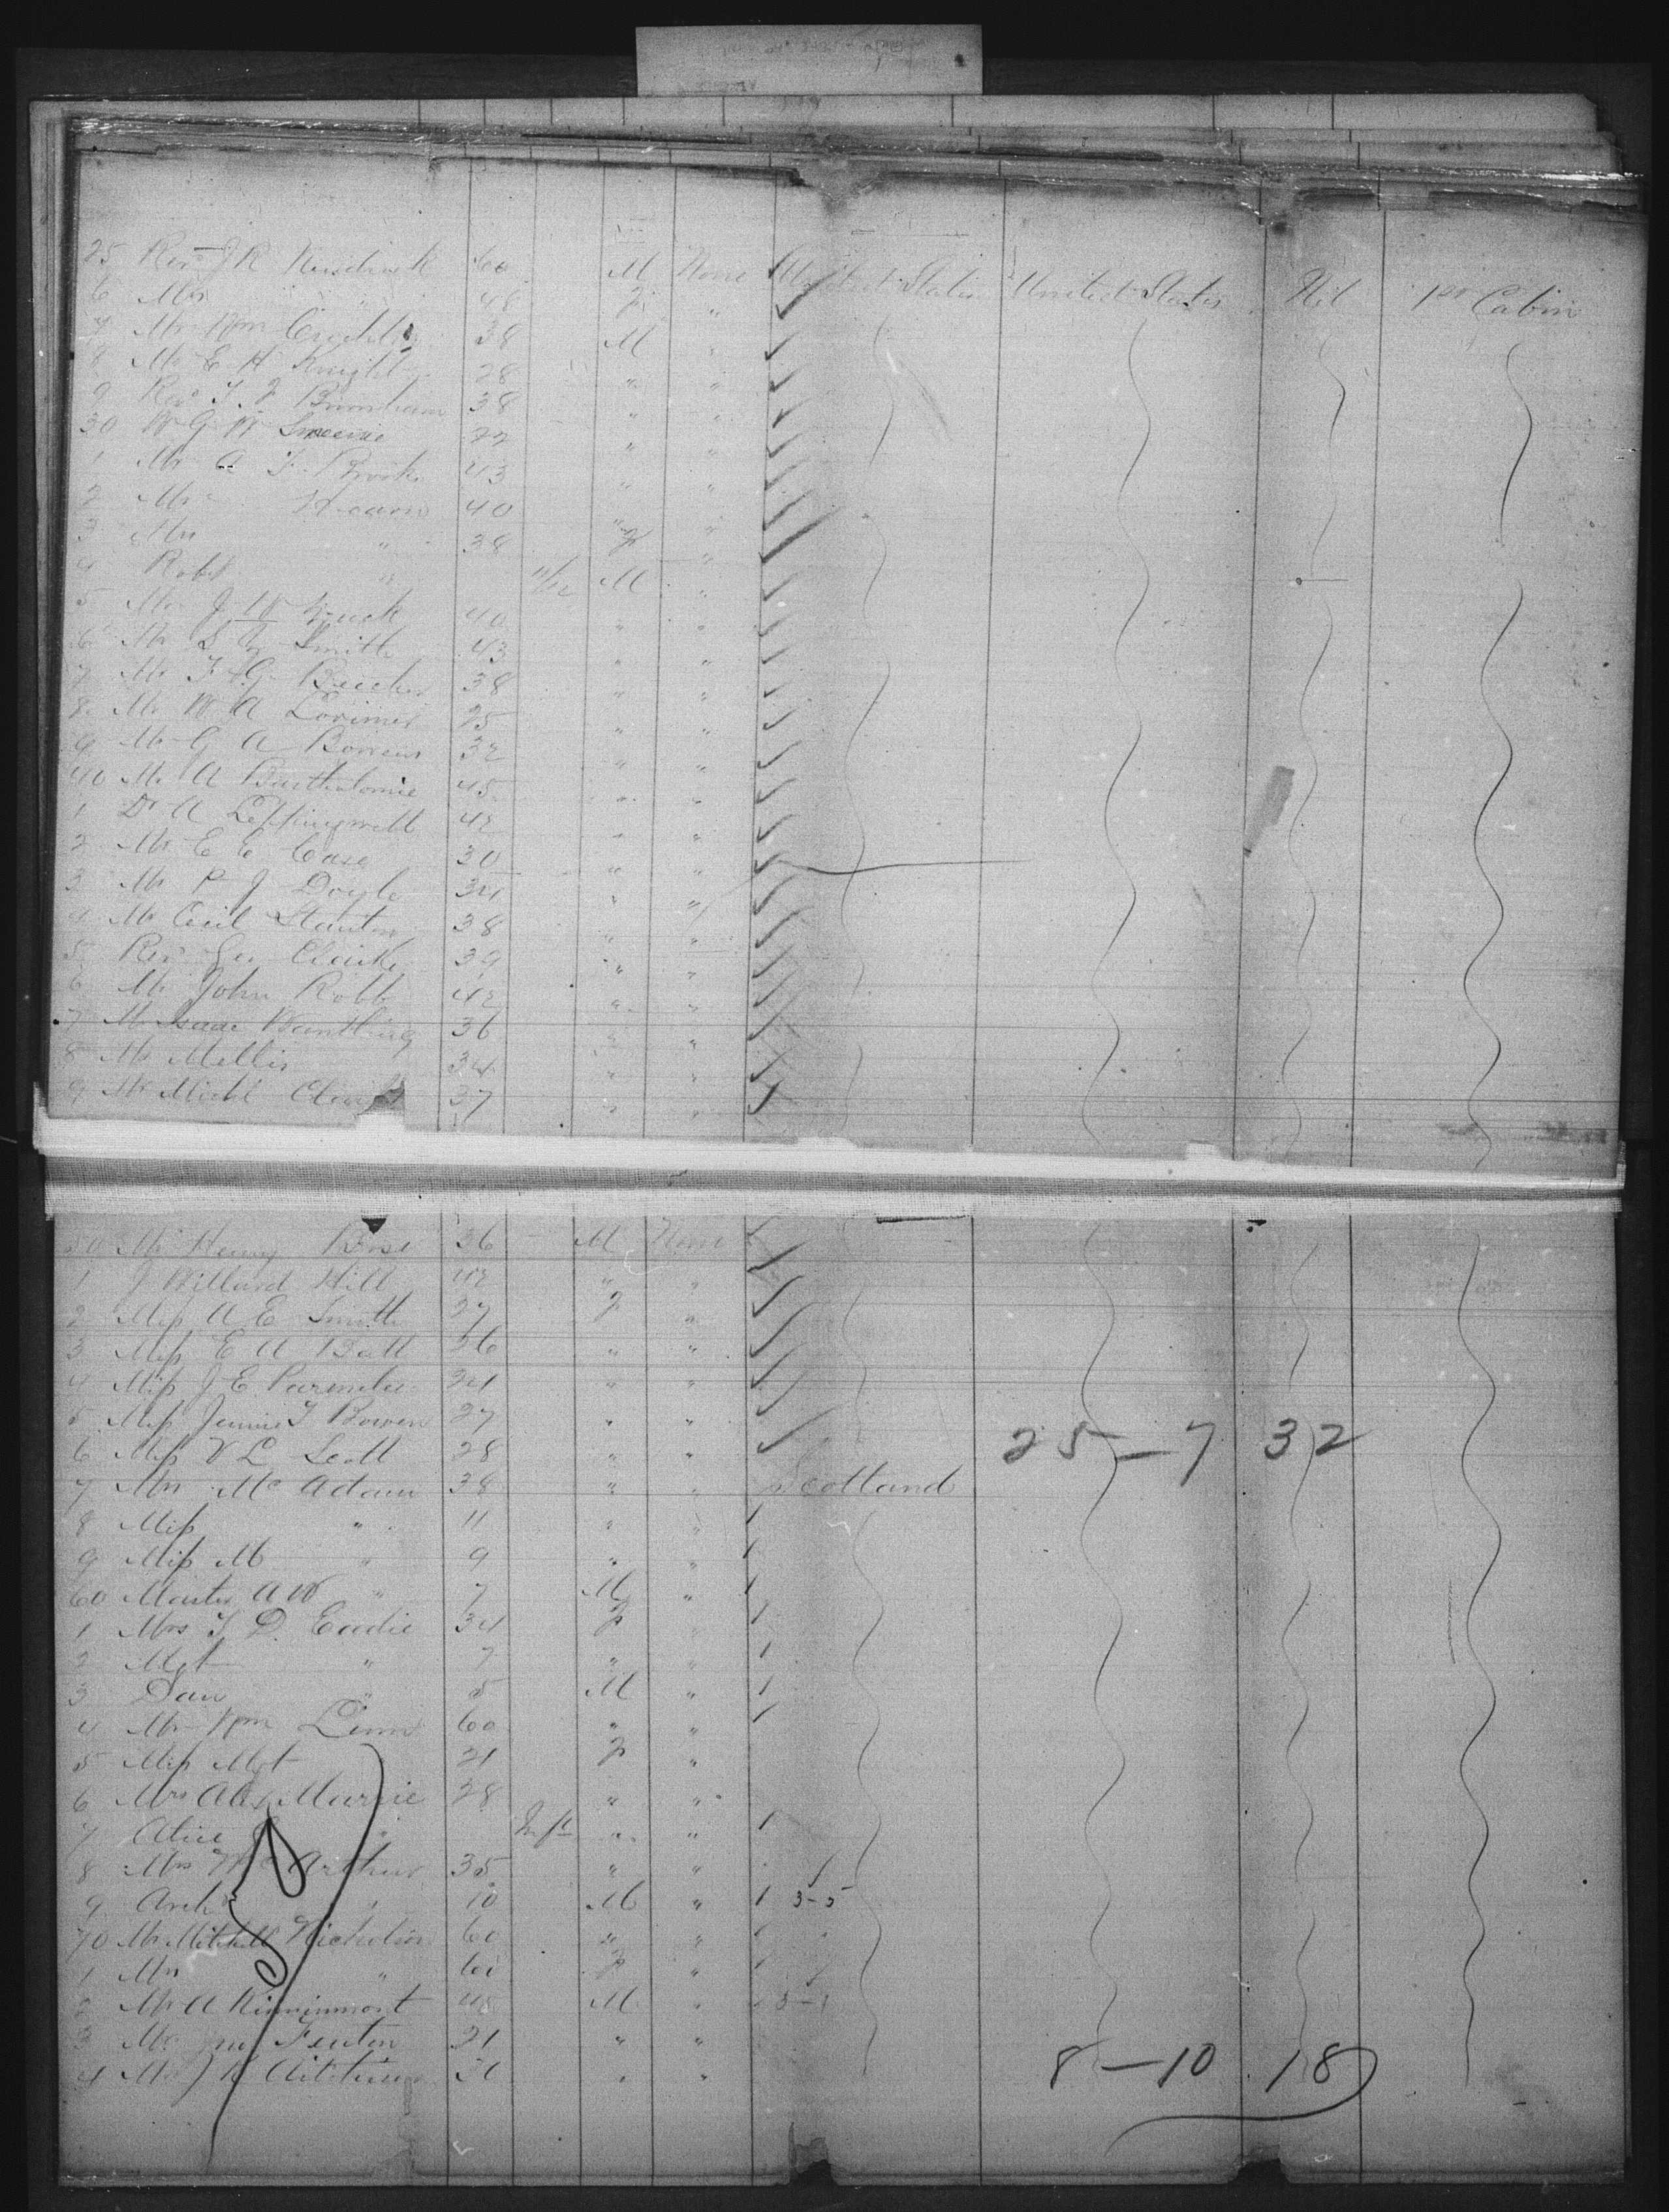 25 Rev J R Kendrick 60 M None United States United States Nil 1st Cabin
6 Mrs " 48 F "
7 Mr Wm 38 M "
8 Mr E H Knight 28 " "
9 Rev T. J Burnham 38 " "
30 W G W " "
1 Mr A F. Brooks 43 " "
2 Mr Hearn 40 " "
3 Mrs " 38 F "
4 Robt " 11/12 M "
5 Mr J W 40 " "
6 Mr S Smith 43 " "
7 Mr F G Beecher 38 " "
8 Mr W A Lorimer 25 " "
9 Mr G A 32 " "
40 Mr A Bartholomie 45 " "
1 Dr A Leffingwell 42 " "
2 Mr E E Case 30 " "
3 Mr P J Doyle 34 " "
4 Mr Cecil Stanton 38 " "
5 Rev Geo Clarke 39 " "
6 Mr John Robb 42 " "
7 Mr Isaac 36 " "
8 Mr Mellis 34 " "
9 Mr Michl 37 " "
50 Mr Henry 36 M None
1 J Willard Hill 42 " "
2 Miss A E Smith 27 F "
3 Miss E A Ball 36 " "
4 Miss J E Parmelee 24 " "
5 Miss Jennie T Bowen 27 " "
6 Miss V L Scott 28 " " 25 – 7 32
7 Mrs McAdam 38 " " Scotland
8 Miss " 11 " "
9 Miss M " 9 " "
60 Master A W " 7 M "
1 Mrs T. D. Eadie 34 F "
2 Mgt " 7 " "
3 Dan " 5 M "
4 Mr Wm 60 " "
5 Miss Mgt 21 F "
6 Mrs Alex Murrie 28 " "
7 Alice " Inft " "
8 Mrs McArthur 35 " "
9 Arch " 10 M " 3-5
70 Mr Mitchell Nicholson 60 " "
1 Mrs " F "
2 Mr A Kinninmont 45 M " 3-1
3 Mr Jno Fenton 21 " "
4 Mr J Aitchison " " 8 – 10 18